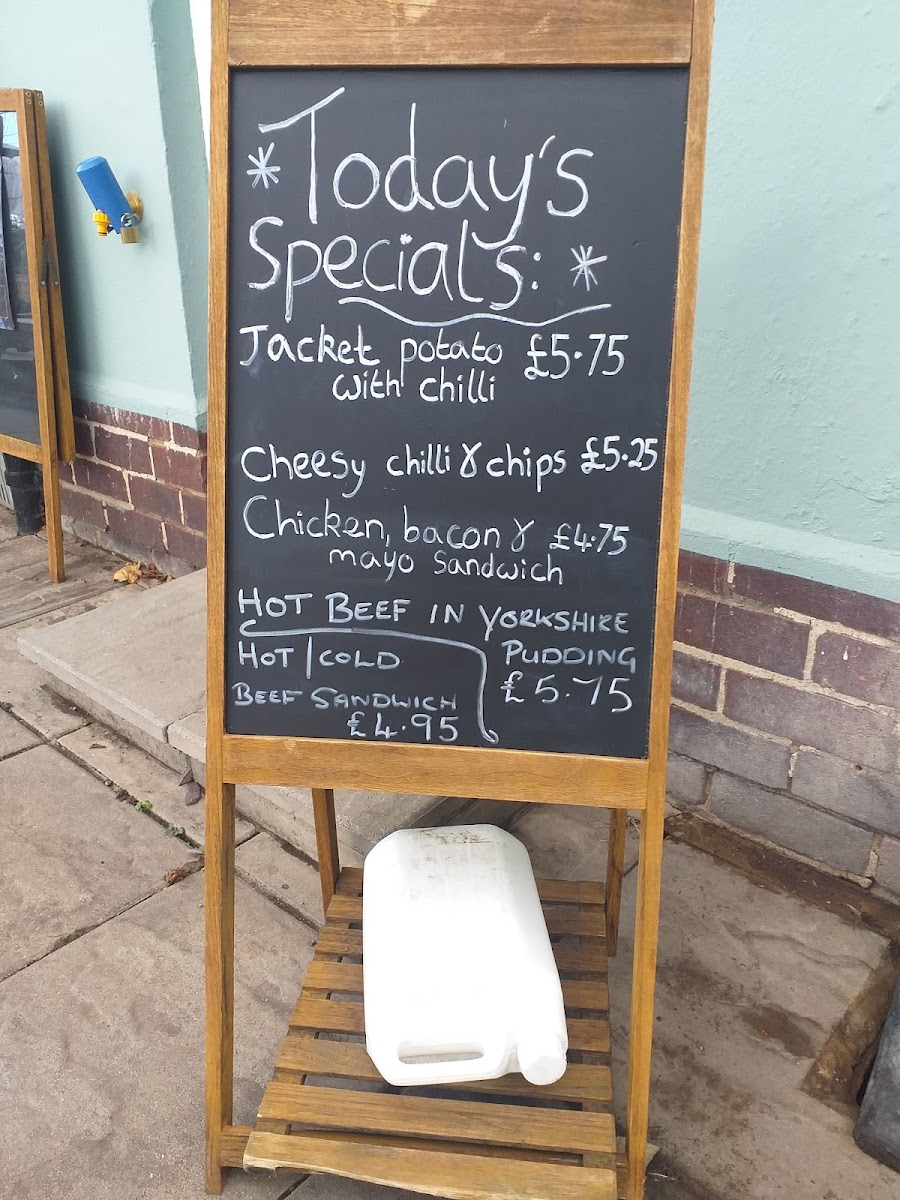 *Today's
Specials: *
Jacket potato £5.75
with chilli
Cheesy chilli & chips £5.25
Chicken, bacon & £4.75
mayo sandwich
HOT BEEF IN YORKSHIRE
PUDDING
£5.75
HOT/COLD
BEEF SANDWICH
£4.95